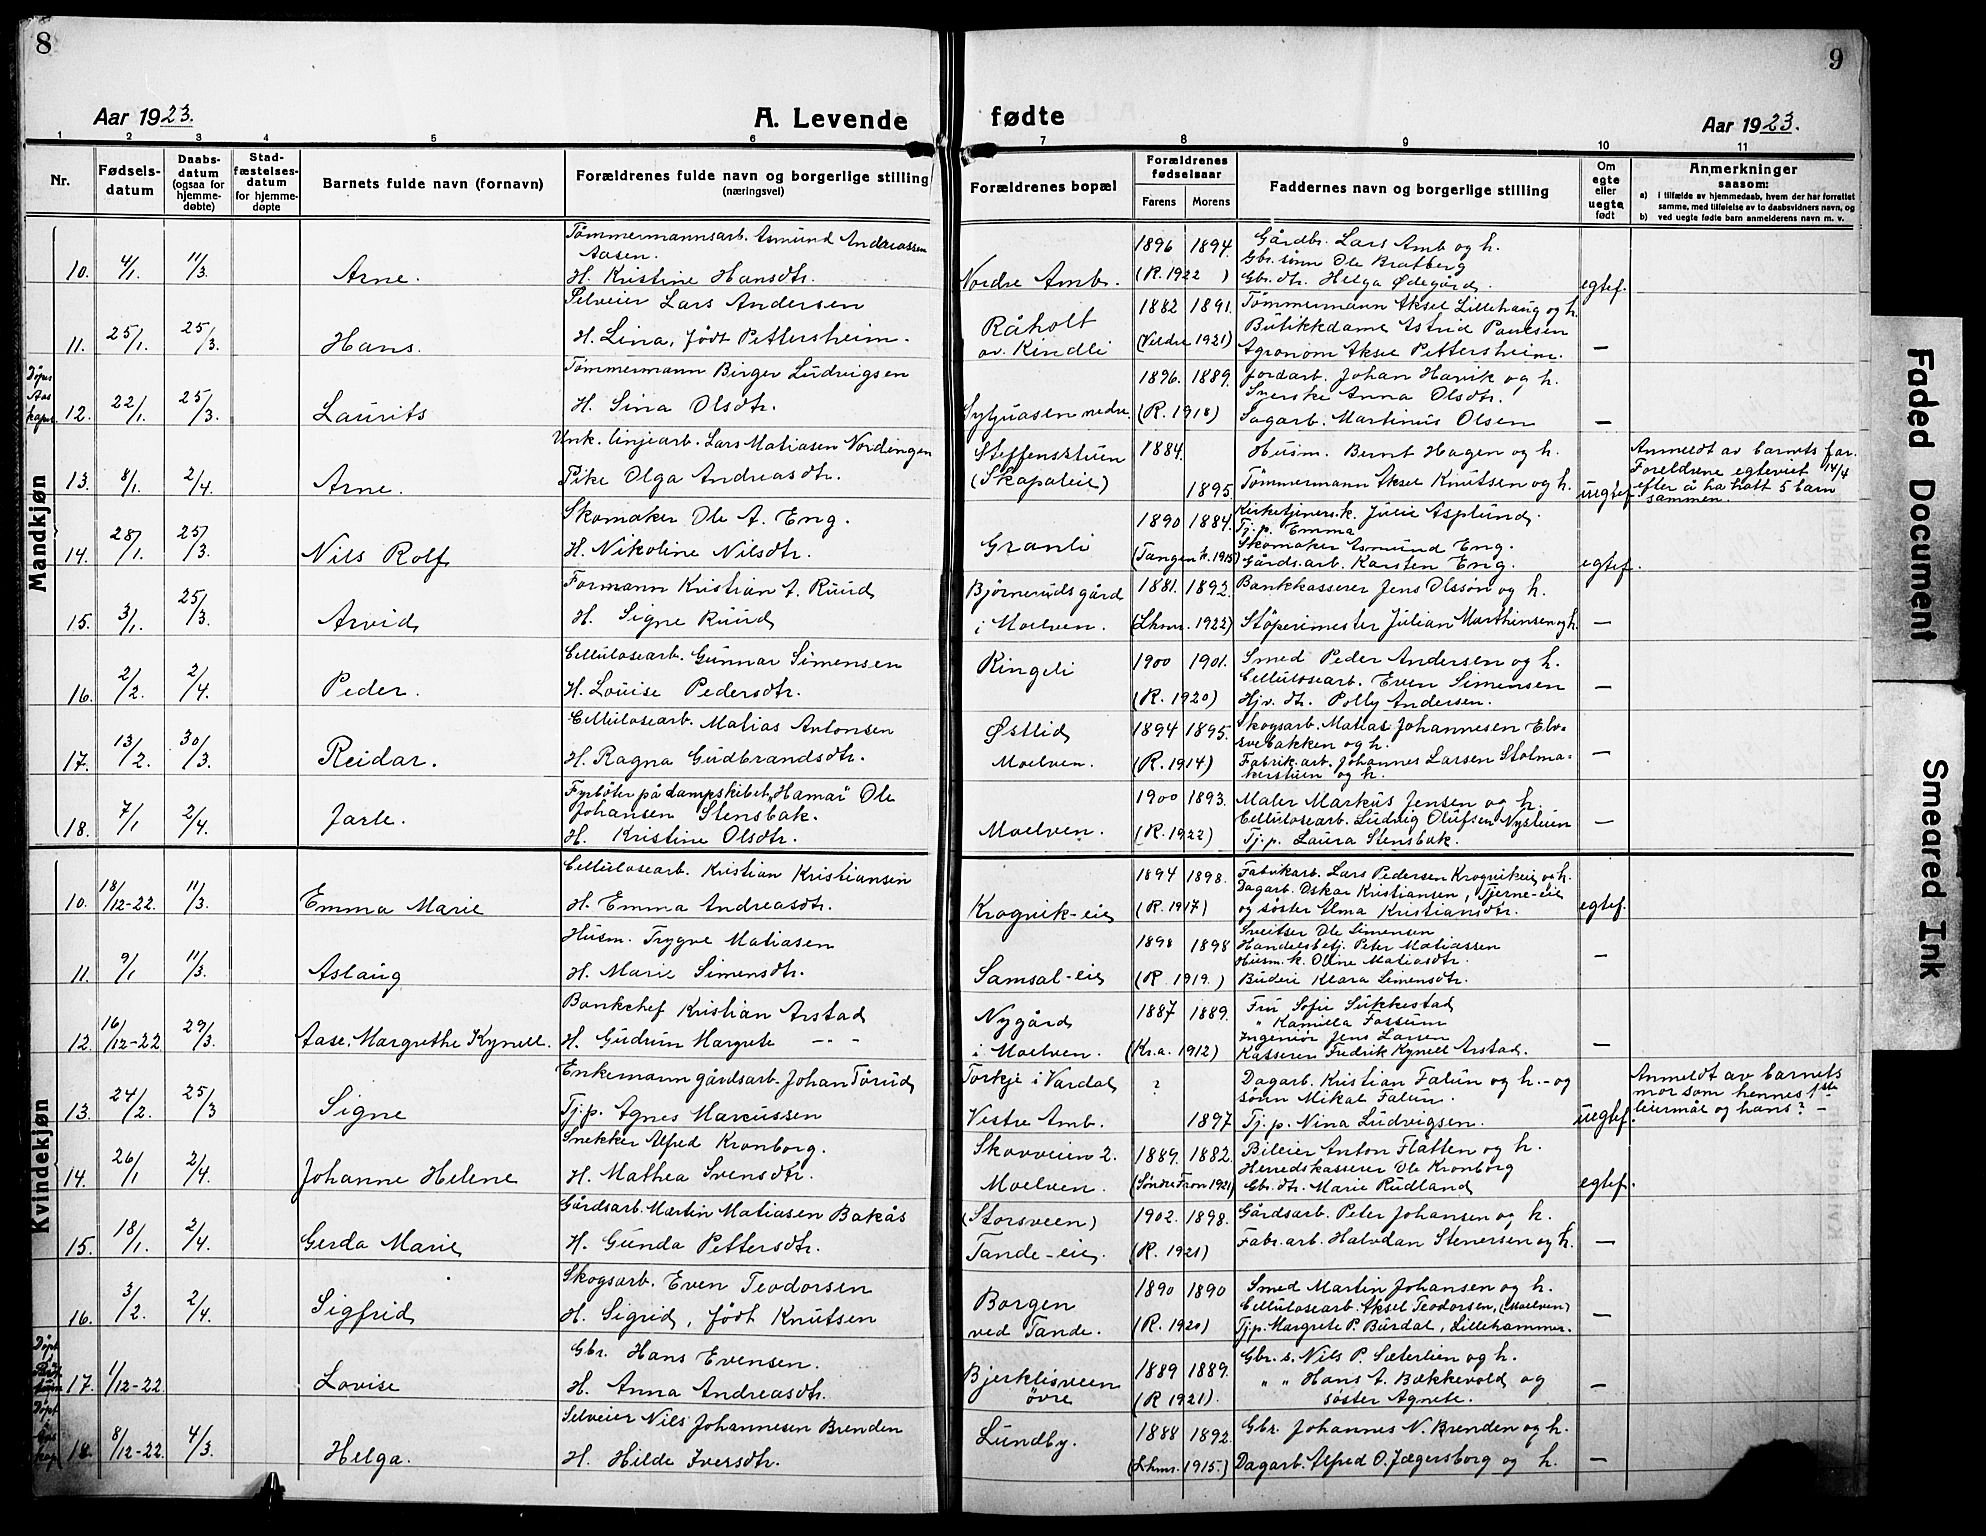 8
Aar 1923.
A. Levende
1 2 3 4 5 6
Nr.
Fødsels-
datum
Daabs-
datum
(ogsaa for
hjemme-
døbte)
Stad-
fæstelses-
datum
for hjemme-
døpte
Barnets fulde navn (fornavn)
Forældrenes fulde navn og borgerlige stilling
(næringsvei)
Mandkjøn
10. 4/1. 11/3. Arne.
Tømmermannsarb. Asmund Andreassen
Aasen.
H. Kristine Hansdtr.
11. 25/1. 25/3. Hans.
Selveier Lars Andersen
H. Lina, født Pettersheim.
Døpt
Aas
kapel.
12. 22/1. 25/3. Laurits
Tømmermann Birger Ludvigsen
H. Sina Olsdtr.
13. 8/1. 2/4. Arne.
Unk. linjearb. Lars Matiasen Nordingen
Pike Olga Andreasdtr.
14. 28/1. 25/3. Nils Rolf
Skomaker Ole A. Eng.
H. Nikoline Nilsdtr.
15. 3/1. 25/3. Arvid
Formann Kristian A. Ruud
H. Signe Ruud
16. 2/2. 2/4. Peder.
Cellulosearb. Gunnar Simensen
H. Louise Pedersdtr.
17. 13/2. 30/3. Reidar.
Cellulosearb. Matias Antonsen
H. Ragna Gudbrandsdtr.
18. 7/1 2/4. Jarle.
Fyrbøter på dampskibet „Hamar" Ole
Johansen Stensbak.
H. Kristine Olsdtr.
Kvindekjøn
10. 18/12-22. 11/3. Emma Marie
Cellulosearb. Kristian Kristiansen
H. Emma Andreasdtr.
11. 9/1 11/3. Aslaug
Husm. Trygve Matiasen
H. Marie Simensdtr.
12. 16/12-22 29/3. Aase Margrethe Kynell.
Bankchef Kristian Arstad
H. Gudrun Margrete -"- "
13. 24/2. 25/3 Signe
Enkemann gårdsarb. Johan Tørud
Tj.p. Agnes Marcussen
14. 26/1 2/4. Johanne Helene
Snekker Alfred Kronborg.
H. Mathea Svensdtr.
15. 18/1. 2/4. Gerda Marie
Gårdsarb. Martin Matiasen Bakås
H. Gunda Pettersdtr.
16. 3/2. 2/4. Sigfrid
Skogsarb. Even Teodorsen
H. Sigrid, født Knutsen
Døpt
17. 1/12-22 Lovise
Gbr. Hans Evensen.
H. Anna Andreasdtr.
Døpt
18. 8/12-22. 4/3. Helga.
Selveier Nils Johannesen Brenden
H. Hilde Iversdtr.
9
fødte
Aar 1923.
7 8 9 10 11
Forældrenes bopæl
Forældrenes
fødselsaar
Farens Morens
Faddernes navn og borgerlige stilling
Om
egte
eller
uegte
født
Anmerkninger
saasom:
a) i tilfælde av hjemmedaab, hvem der har forrettet
samme, med tilføielse av to daabsvidners navn, og
b) ved uegte fødte barn anmelderens navn m. v.
Nordre Amb. 1896 1894. (R. 1922)
Gårdbr. Lars Amb og h.
Gbr. sønn Ole Bratberg
Gbr. dtr. Helga Ødegård.
egtef.
Råholt
av Kindli
1882 1891. (Verdre 1921)
Tømmermann Aksel Lillehaug og h.
Butikkdame Astrid Paulsen
Agronom Aksel Pettersheim.
—
nedre. 1896. 1889. (R. 1918)
Jordarb. Johan Harvik og h.
Syerske Anna Olsdtr.
Sagarb. Martinus Olsen
—
Steffensstuen
(Skapaleie)
1884. 1895.
Husm. Bernt Hagen og h.
Tømmermann Aksel Knutsen og h.
uegtef.
Anmeldt av barnets far.
Foreldrene egteviet 14/4
efter å ha hatt 5 barn
sammen.
Granli 1890 1884. (Tangen k. 1915)
Kirketjeners.k. Julie Asplund.
Tj.p. Emma
Skomaker Asmund Eng.
Gårds.arb. Karsten Eng.
egtef.
Bjørnerudsgård
i Moelven.
1881. 1892. (Lhmr. 1922)
Bankkasserer Jens Olsson og h.
Støperimester Julian Marthinsen og h.
—
Ringeli 1900 1901. (R. 1920)
Smed Peder Andersen og h.
Cellulosearb. Even Simensen
Hjv. dtr. Polly Andersen.
—
Østlid
Moelven.
1894 1895. (R. 1914)
Skogsarb. Matias Johannesen Elv-
svebakken og h.
Fabrik.arb. Johannes Larsen Stolma-
kerstuen og h.
—
Moelven. 1900 1893. (R. 1922)
Maler Markus Jensen og h.
Cellulosearb. Ludvig Olufsen Nystuen
Tj.p. Laura Stensbak.
—
Krogvik-eie 1894 1898. (R. 1917)
Fabrikarb. Lars Pedersen Krogvikeie og h.
Dagarb. Oskar Kristiansen, Tjerne-eie
og søster Alma Kristiansdtr.
egtef.
Samsal-eie 1898 1898 (R. 1919.)
Sveitser Ole Simensen
Handelsbetj. Peter Matiassen
Husm. k. Oline Matiasdtr.
Budeie Klara Simensdtr.
—
Nygård
i Moelven.
1887 1889. (Kr.a. 1912)
Fru Sofie Sukkestad
" Kamilla Fossum
Ingeniør Jens Larsen
Kasserer Fredrik Kynell Arstad.
—
Torkje i Vardal
Vestre Amb.
? 1897
Dagarb. Kristian Falun og h. - og
sønn Mikal Falun.
Tj.p. Nina Ludvigsen.
uegtef.
Anmeldt av barnets
mor som hennes 1ste
leiermål og hans? -
Skovveien 2.
Moelven.
1889. 1882. (Søndre Fron 1921)
Bileier Anton Flåtten og h.
Herredskasserer Ole Kronborg
Gb. dtr. Marie Rudland
egtef.
(Storsveen)
Tande-eie.
1902. 1898. (R. 1921)
Gårdsarb. Peter Johansen og h.
Fabr.arb. Halvdan Stenersen og h.
—
Borgen
ved Tande.
1890 1890 (R. 1920)
Smed Martin Johansen og h.
Cellulosearb. Aksel Teodorsen, (Moelven)
Tj.p. Margrete P. Burdal, Lillehammer.
—
Bjerklisveen
øvre
1889 1889. (R 1921).
Gbr. s. Nils P. Sæterlien og h.
" " Hans A. Bækkevold og
søster Agnete.
—
Lundby. 1888 1892. (Lhmr. 1915.)
Gbr. Johannes N. Brenden og h.
Dagarb. Alfred O. Jægersborg og h.
—
Faded Document
Smeared Ink